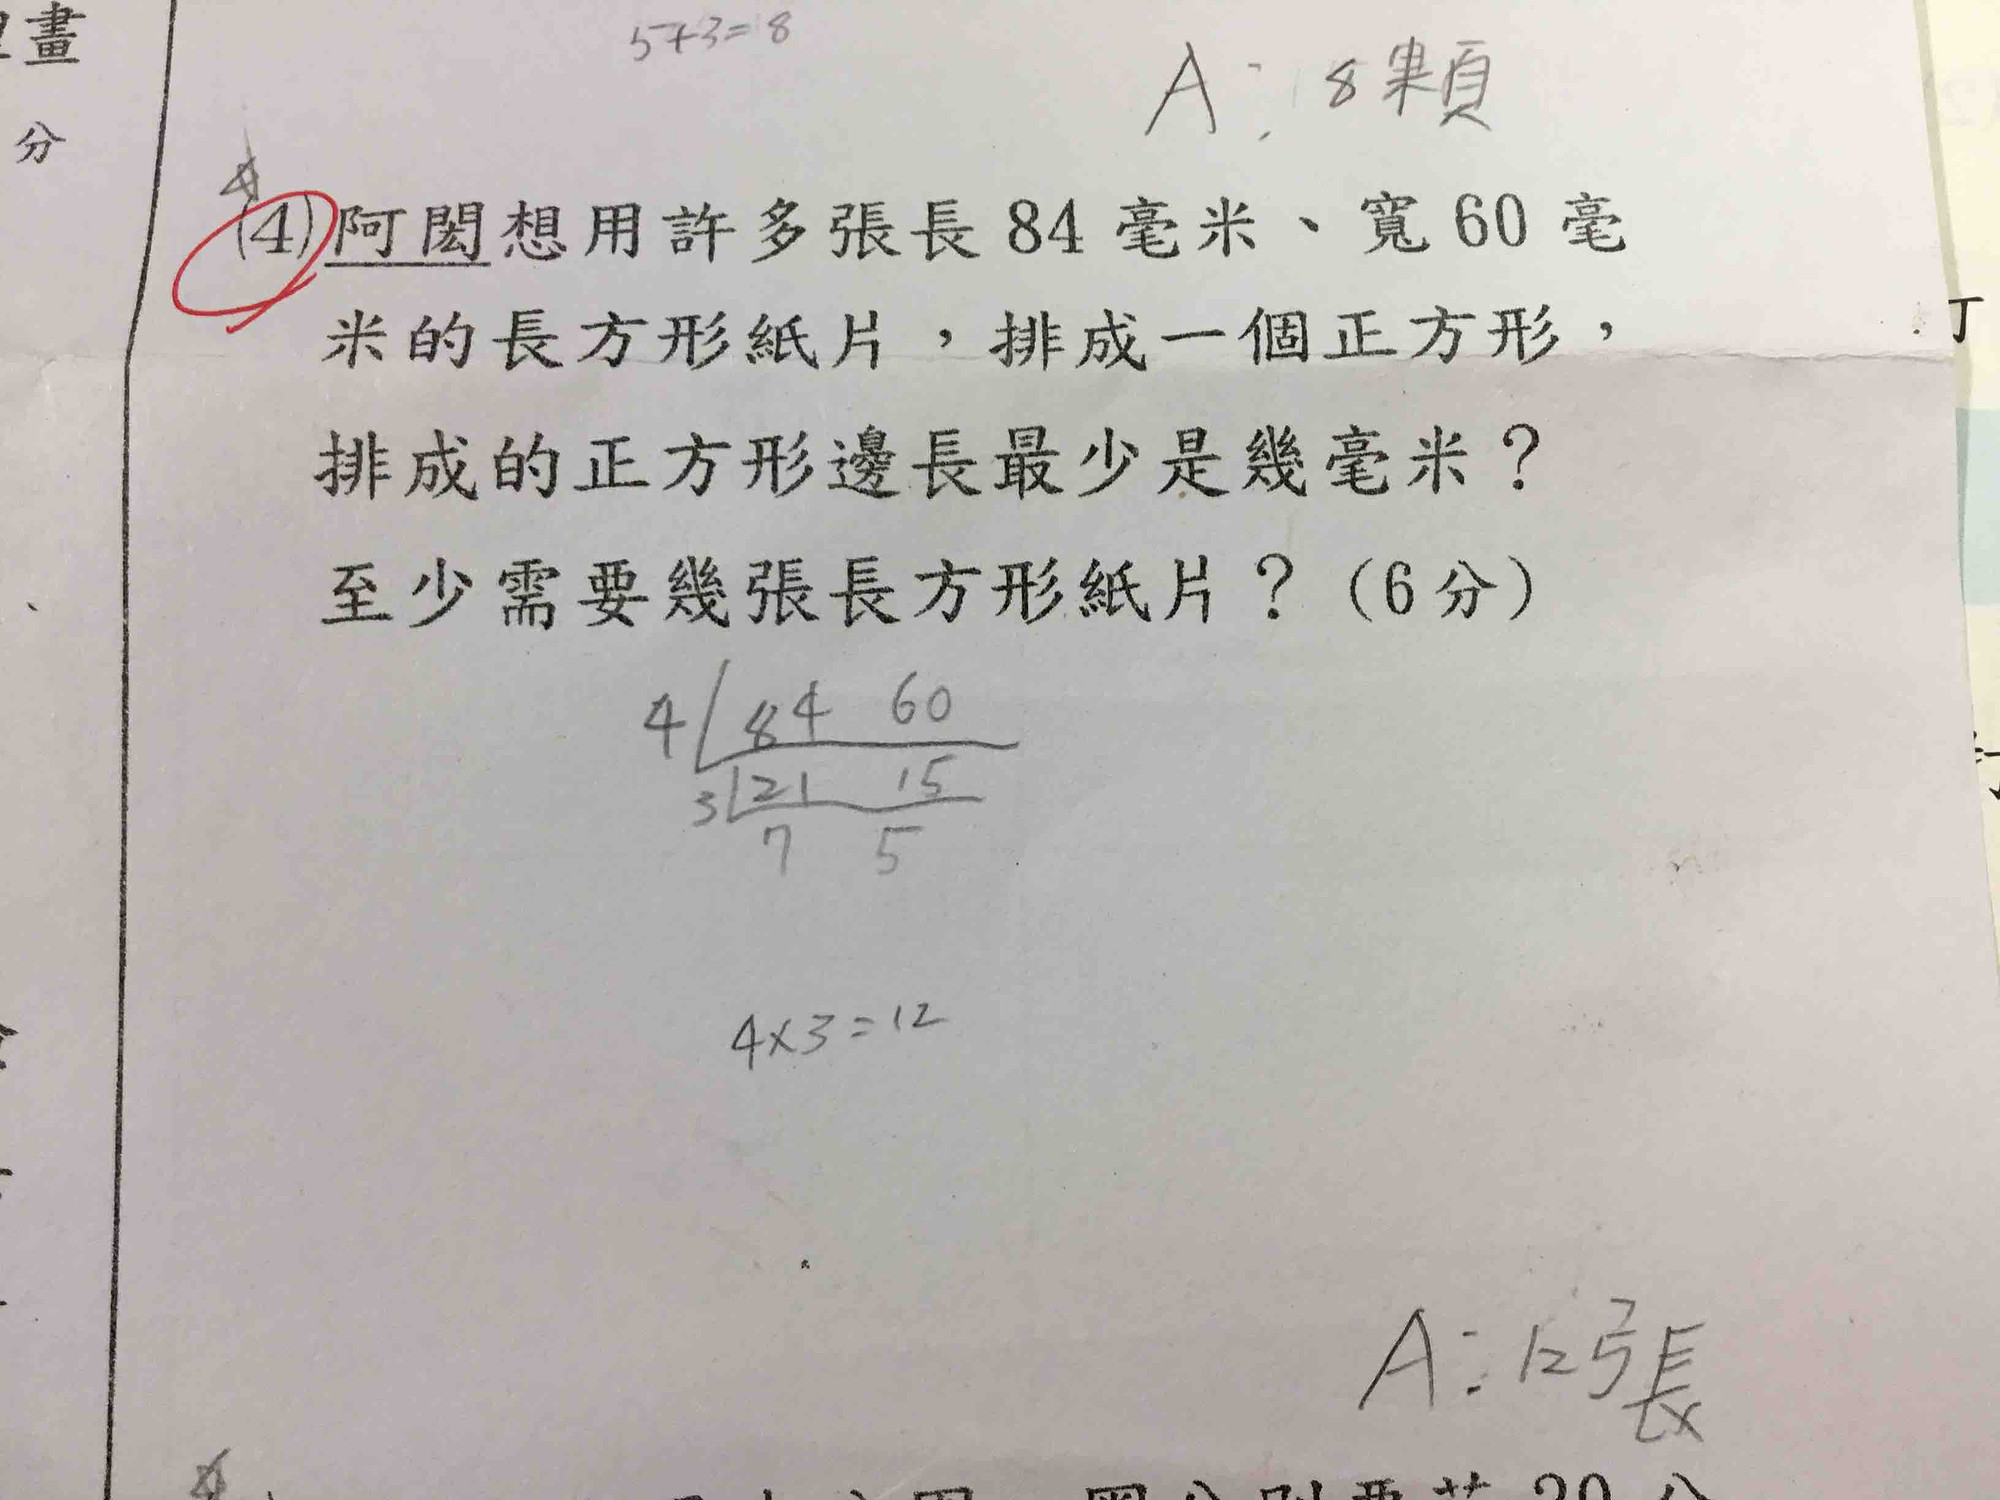 畫
5+3=8
A: 8顆
分
(4)阿閎想用許多張長84毫米、寬60毫
米的長方形紙片，排成一個正方形，
排成的正方形邊長最少是幾毫米？
至少需要幾張長方形紙片？（6分）
4 84 60
3 21 15
7 5
4×3=12
A: 12張